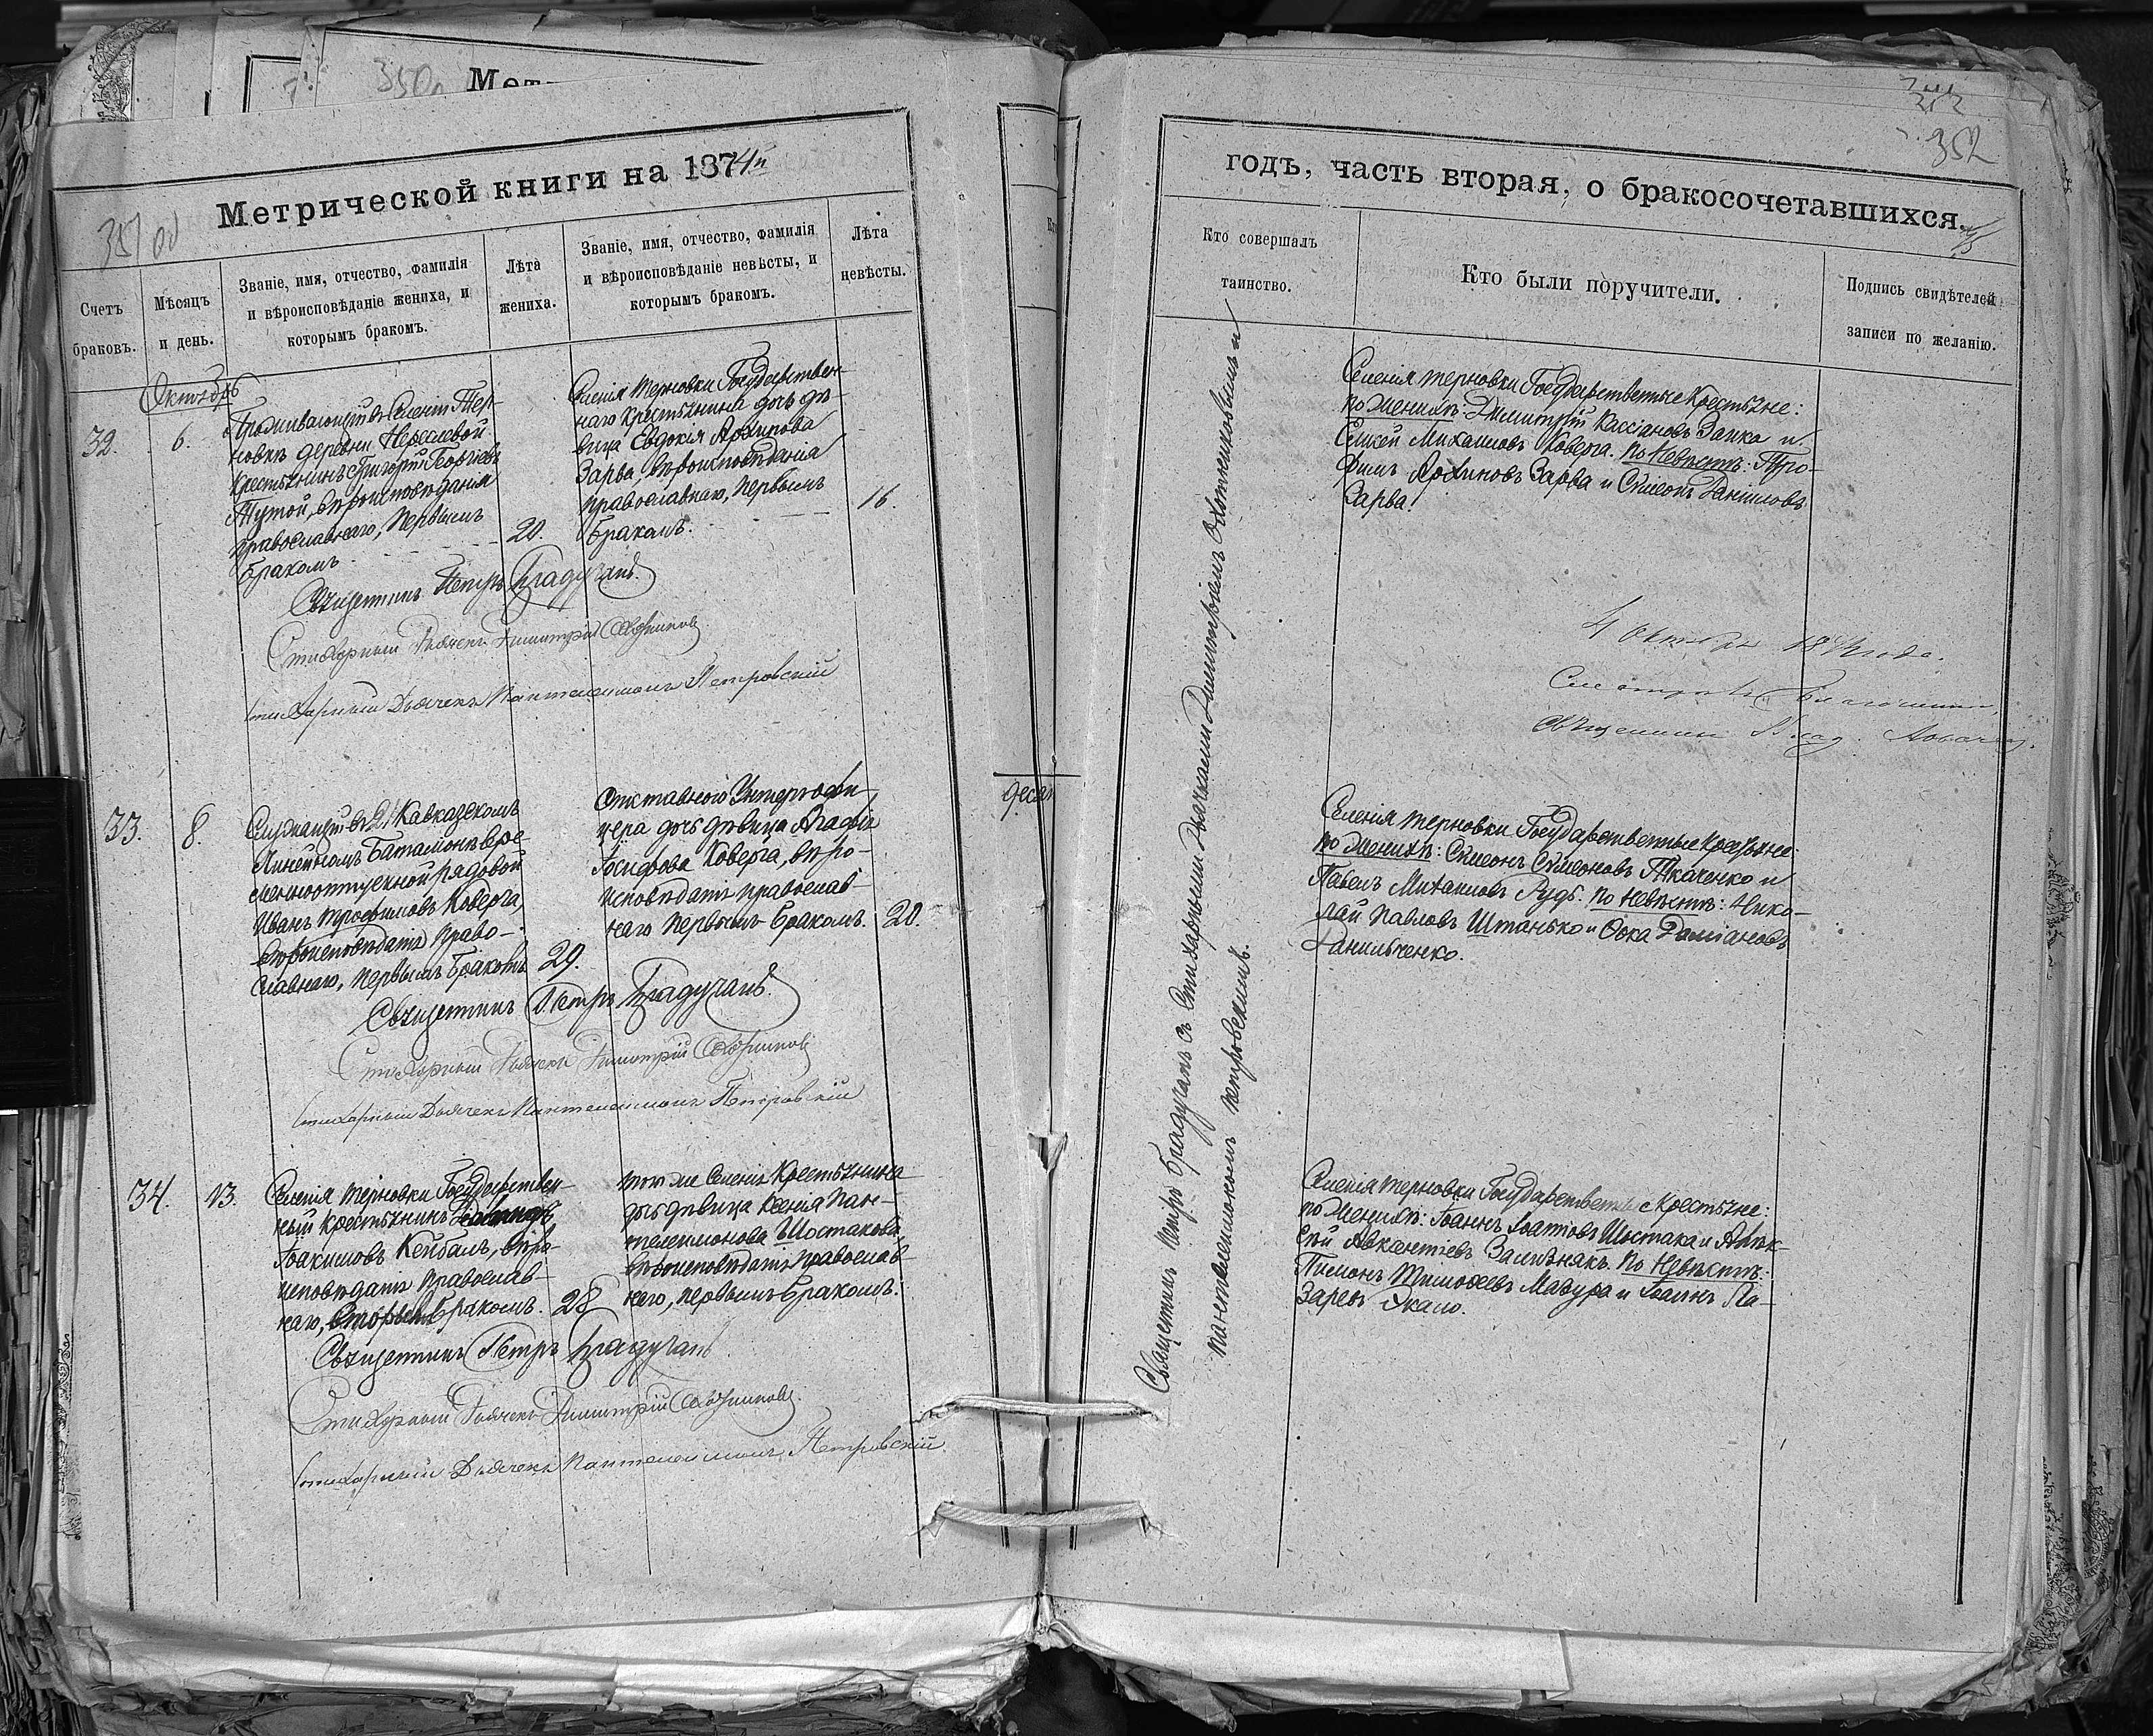 350
Мет
Метрической книги на 1874й
351 об
Счетъ
браковъ.
Мѣсяцъ
и день.
Званіе, имя, отчество, фамилія
и вѣроисповѣданіе жениха, и
которымъ бракомъ.
Лѣта
жениха.
Званіе, имя, отчество, фамилія
и вѣроисповѣданіе невѣсты, и
которымъ бракомъ.
Лѣта
невѣсты.
Октябрь
32.
6.
Проживающій въ Селеніи Тер-
новкѣ деревни
Крестьянинъ Григорій Георгіевъ
Тутой, вѣроисповѣданія
православнаго, первымъ
бракомъ
20.
Селенія Терновки Государствен-
наго Крестьянина дочь дѣ-
вица Евдокія Архипова
Зарва, вѣроисповѣданія
православнаго, первымъ
бракомъ.
16.
Священникъ Петръ Брадучанъ.
Стихарный Дьячекъ Димитрій
Стихарный Дьячекъ Пантелеимонъ Петровскій
33.
8.
Служащій въ 21 Кавказскомъ
Линейномъ Баталіонѣ вре-
менноотпускной рядовой
Иванъ Трофимовъ Коверга,
вѣроисповѣданія право-
славнаго, первымъ бракомъ
29.
Отставнаго Унтеръофи-
цера дочь дѣвица Агафія
Іосифова Коверга, вѣро-
исповѣданія православ-
наго первымъ бракомъ.
20.
Священникъ Петръ Брадучанъ.
Стихарный Дьячекъ Димитрій
Стихарный Дьячекъ Пантелеимонъ Петровскій
34.
13.
Селенія Терновки Государствен-
ный крестьянинъ
Іоакимовъ Кейбалъ, вѣро-
исповѣданія православ-
наго, вторымъ бракомъ.
28
Того же Селенія Крестьянина
дочь дѣвица Ксенія Пан-
телеимонова Шостакова,
вѣроисповѣданія православ-
наго, первымъ бракомъ.
Священникъ Петръ Брадучанъ
Стихарный Дьячекъ Димитрій
Стихарный Дьячекъ Пантелеимонъ Петровскій
352
годъ, часть вторая, о бракосочетавшихся.
Кто совершалъ
таинство.
Кто были поручители.
Подпись свидѣтелей
записи по желанію.
Священникъ Петръ Брадучанъ съ Стихарными Дьячками Димитріемъ и
Пантелеимономъ Петровскимъ.
Селенія Терновки Государственные Крестьяне:
по женихѣ: Димитрій Кассіановъ Заика и
Михаиловъ Коверга. По Невѣстѣ: Тро-
фимъ Архиповъ Зарва и Симеонъ Даниловъ
Зарва.
4 октября
Благочинный
Священникъ
Селенія Терновки Государственные Крестьяне:
по женихѣ: Симеонъ Симеоновъ Ткаченко и
Павелъ Михаиловъ Рудь. По невѣстѣ: Нико-
лай Павловъ Штанько и Даміановъ
Данильченко.
Селенія Терновки Государственные Крестьяне:
по женихѣ: Іоаннъ Шостака и Алек-
сѣй Авксентіевъ Замѣнякъ. По Невѣстѣ:
Пимонъ Тимофеевъ Мазура и Іоаннъ Ла-
заревъ